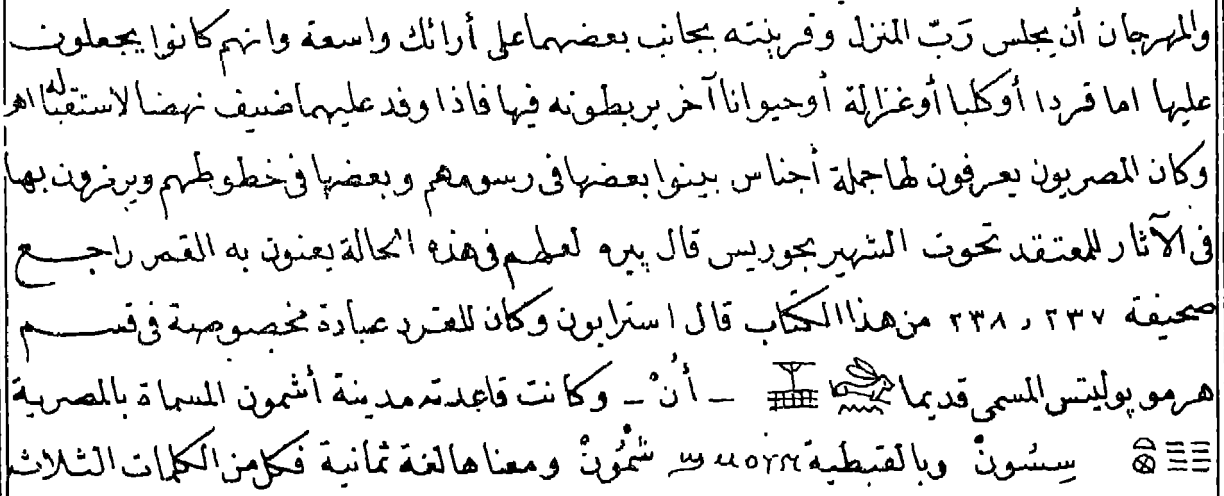 والمهرجان أن يجلس رَبّ المنزل وقرينته بجانب بعضهما على أرائك واسعة وانهم كانوا يجعلون
عليها اما قردا أو كلبا أو غزالة أو حيوانا آخر يربطونه فيها فاذا وفد عليهما ضيف نهضا لاستقباله اهـ
وكان المصريون يعرفون لها جملة أجناس بينوا بعضها فى رسومهم وبعضها فى خطوطهم ويرمزون بها
فى الآثار للمعتقد تحوت الشهير بجوريس قال پيره لعلهم فى هذه الحالة يعنون به القمر راجع
صحيفة ٢٣٧ و ٢٣٨ من هذا الكتاب قال استرابون وكان للقرد عبادة مخصوصة فى قسم
هرموپوليتس المسمى قديما ــ أنْ ــ وكانت قاعدته مدينة أشمون المسماة بالمصرية
سِسُونْ وبالقبطية ϣⲙⲟⲩⲛ شْمُونْ ومعناها لغة ثمانية فكل من الكلمات الثلاث